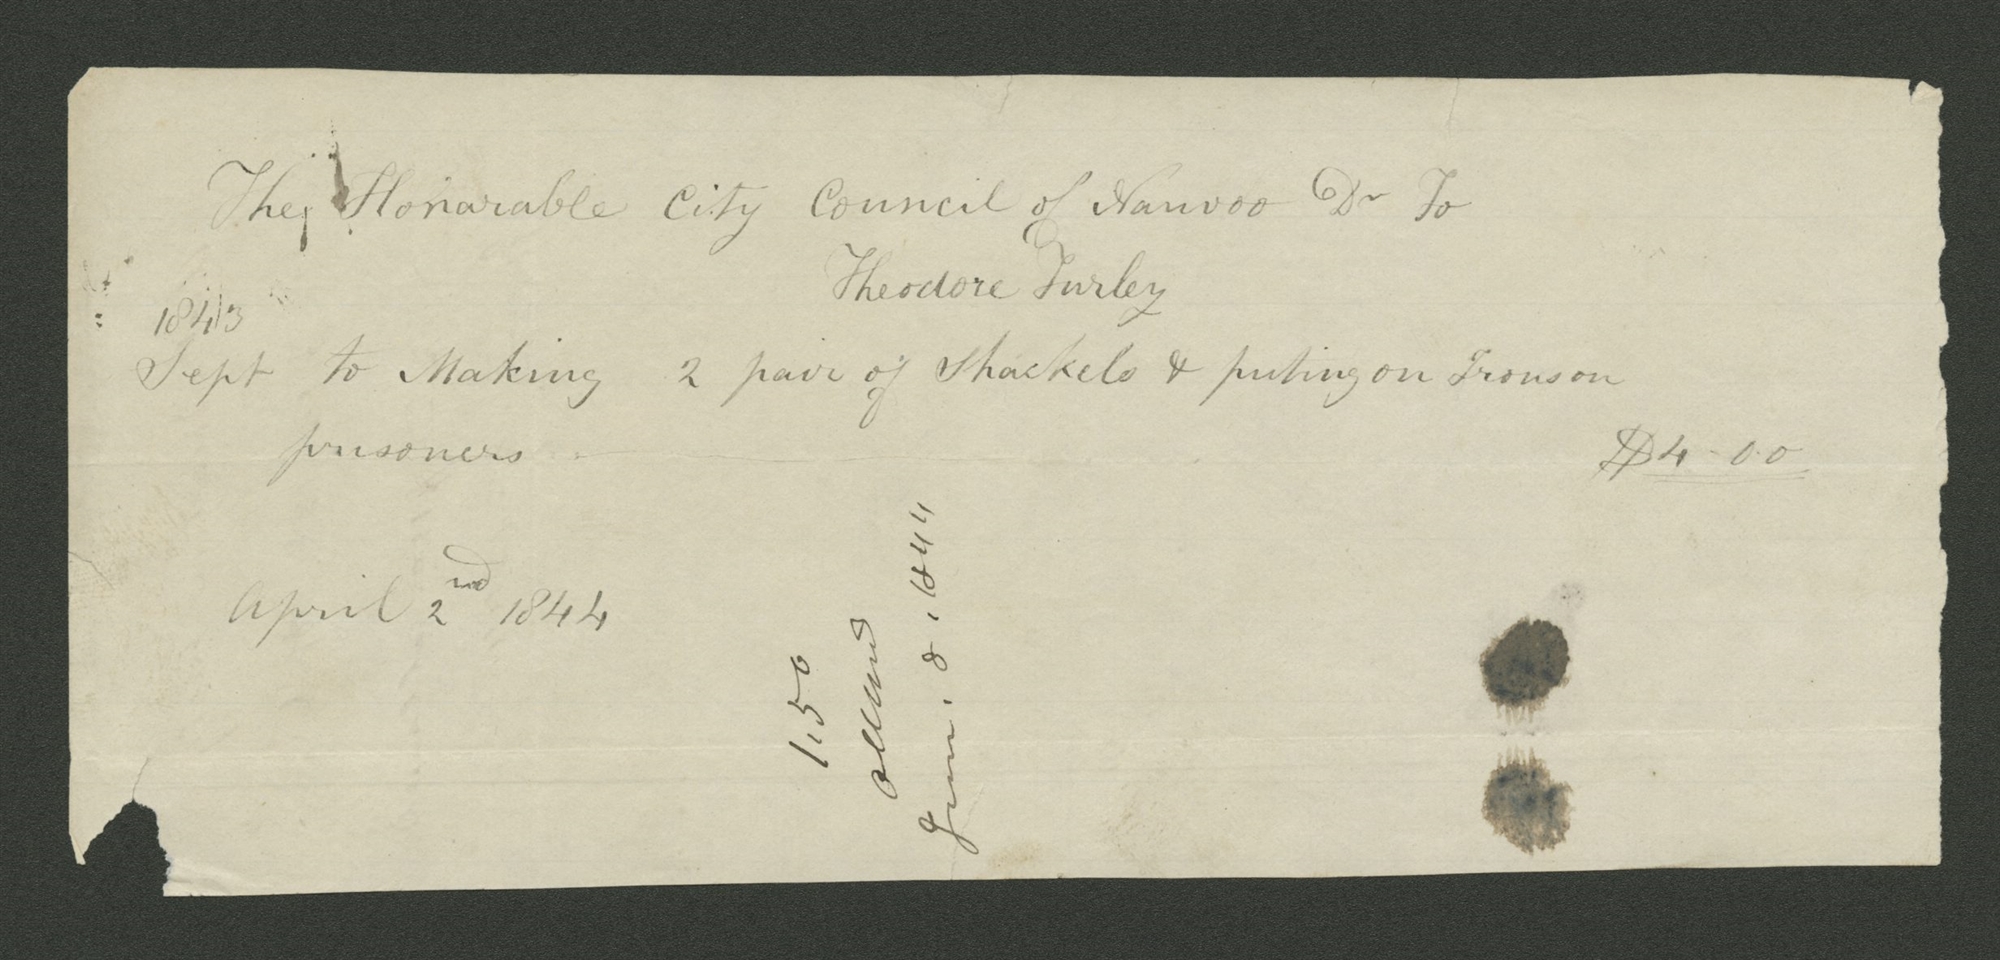 The Honarable City Council of Nauvoo Dr To
Theodore Turley
1843
Sept to Making 2 pair of Shackels & puting on Irons on
prisoners $4-00
April 2nd 1844
1.50
allowed
June. 8, 1844